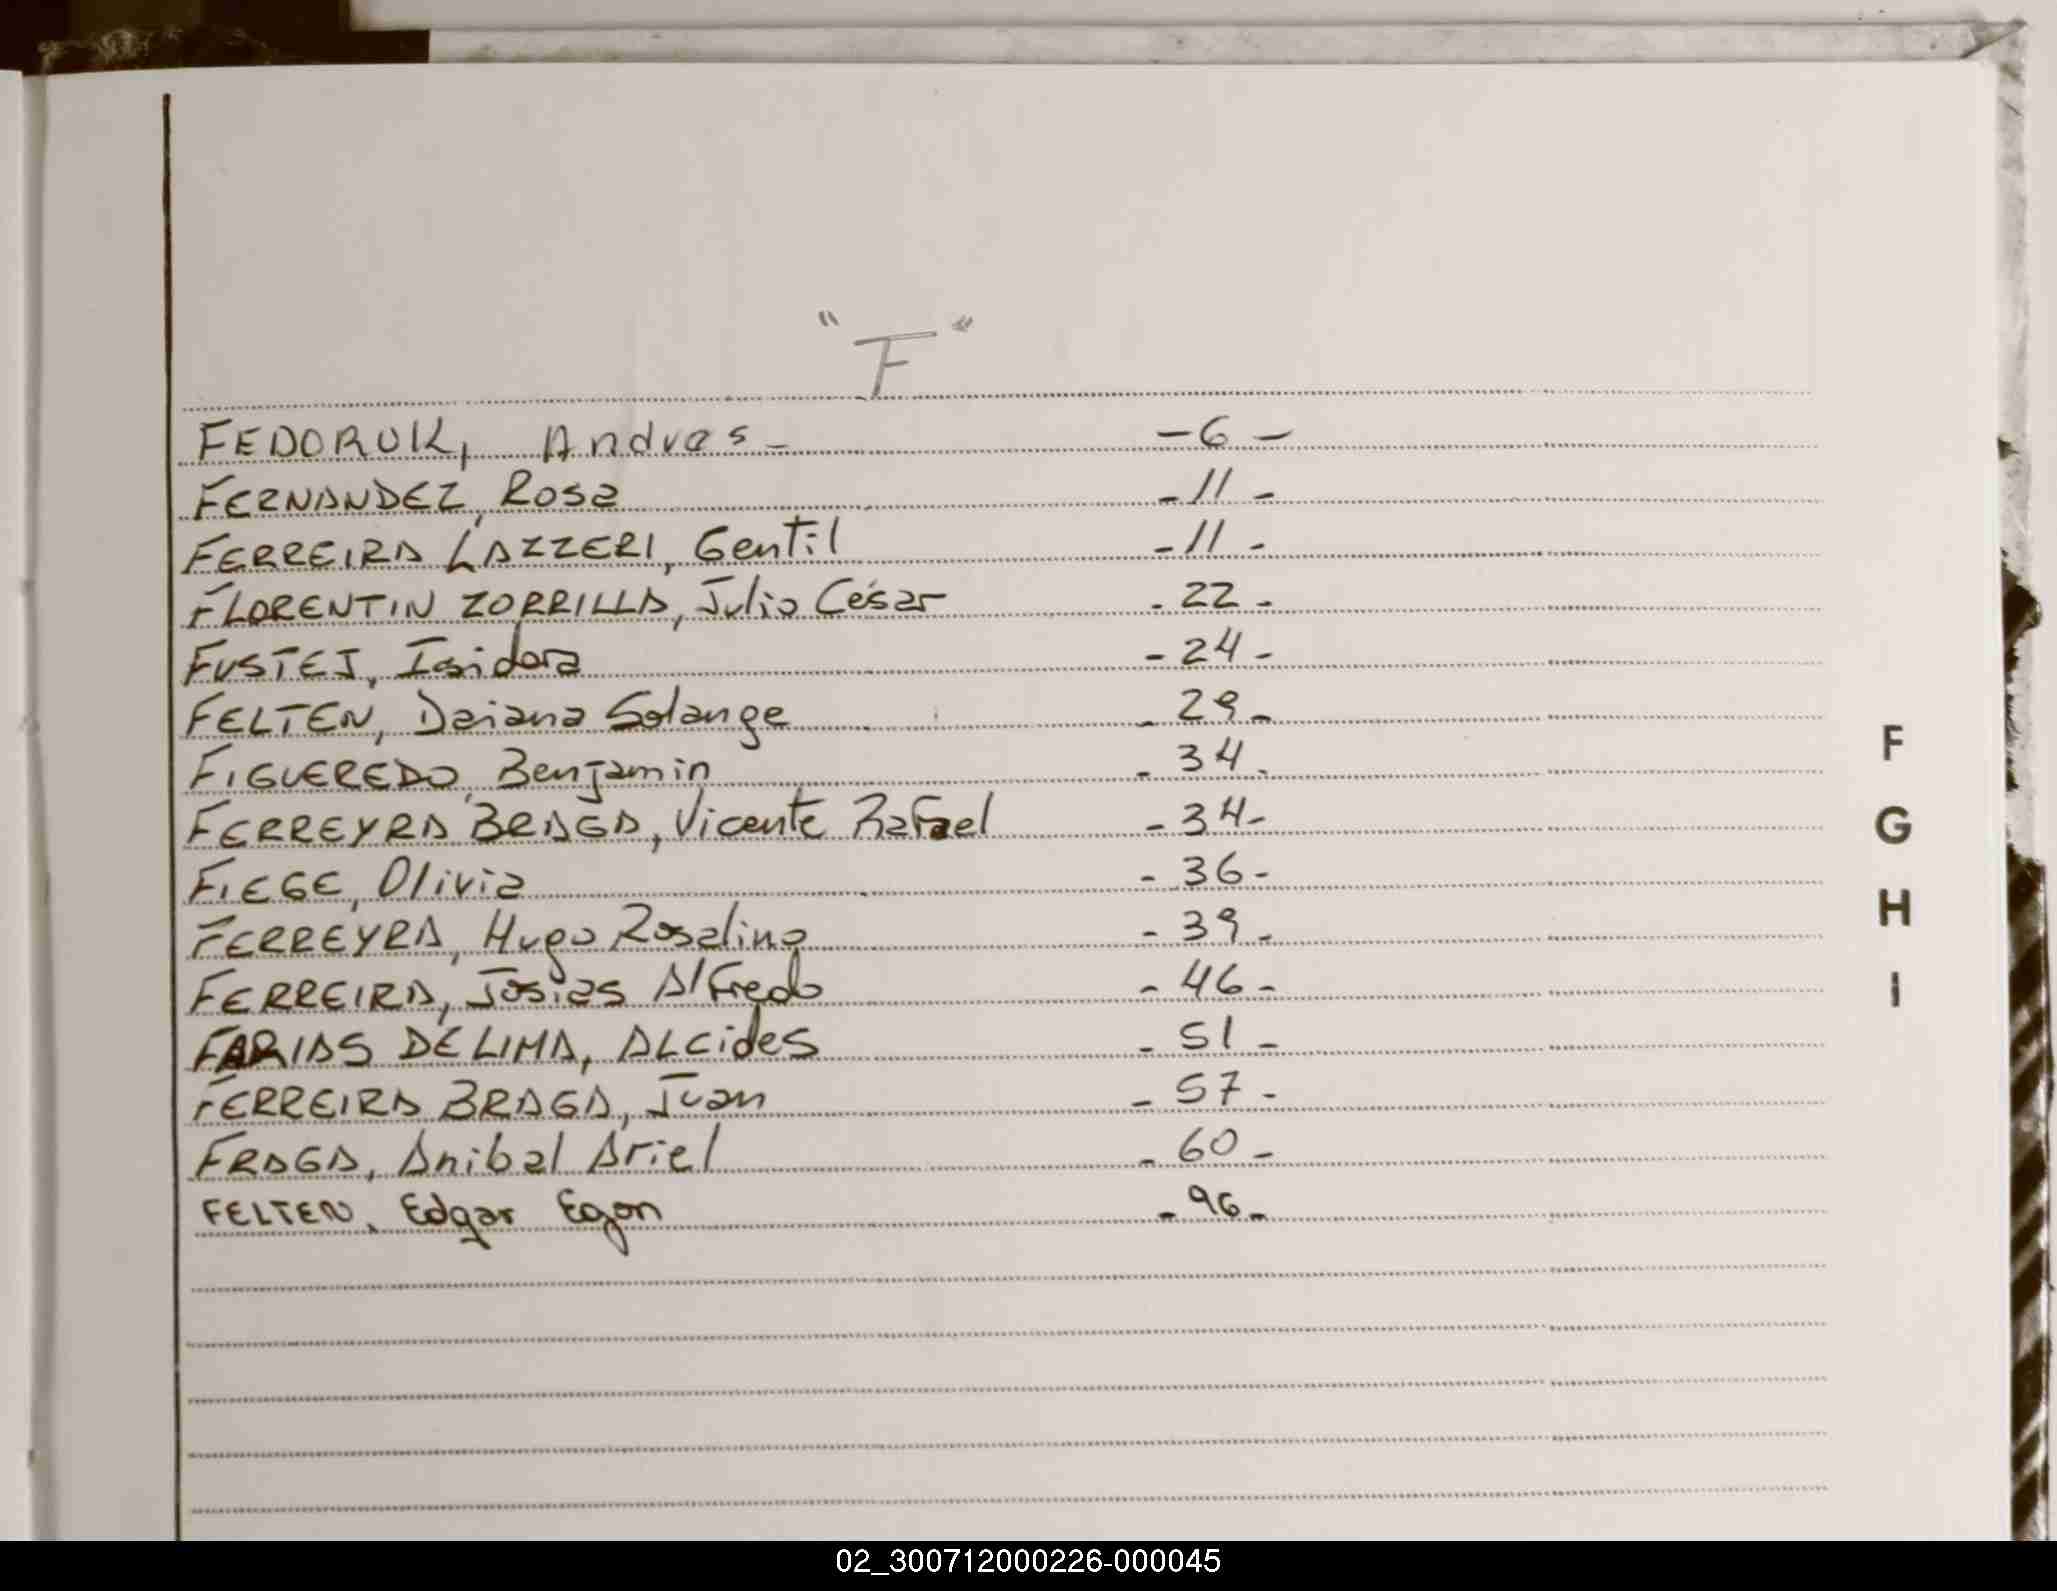 "F"
FEDORUK, Andres - -6-
FERNANDEZ, Rosa -11-
FERREIRA LAZZERI, Gentil -11-
FLORENTIN ZORRILLA, Julio César -22-
FUSTEJ, Isidora -24-
FELTEN, Daiana Solange -29-
FIGUEREDO, Benjamin -34-
FERREYRA BRAGA, Vicente Rafael -34-
FIEGE, Olivia -36-
FERREYRA, Hugo Rosalino -39-
FERREIRA, Josias Alfredo -46-
FARIAS DE LIMA, ALCides -51-
FERREIRA BRAGA, Juan -57-
FRAGA, Anibal Ariel -60-
FELTEN, Edgar Egon -96-
F
G
H
I
02_300712000226-000045